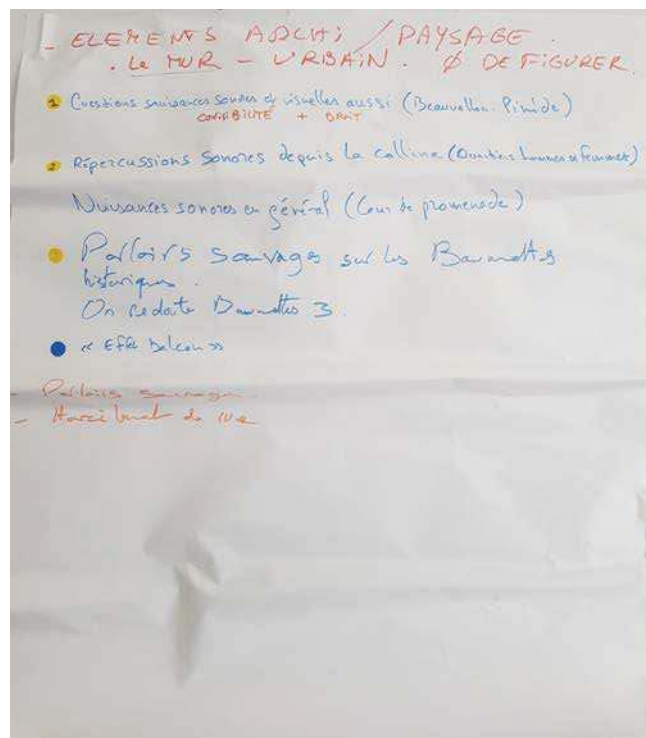 - ELEMENTS ARCHI / PAYSAGE.
. Le MUR - URBAIN. Ø DEFIGURER.
1 Questions nuisances sonores et visuelles aussi (Beauvallon. Pinède)
COVISIBILITÉ + BRUIT
2 Répercussions sonores depuis la colline (Quartiers hommes et femmes)
Nuisances sonores en général (Cour de promenade)
Parloirs sauvages sur les Baumettes
historiques.
On redoute Baumettes 3.
« Effet balcon »
- Parloirs sauvages
- Harcèlement de rue